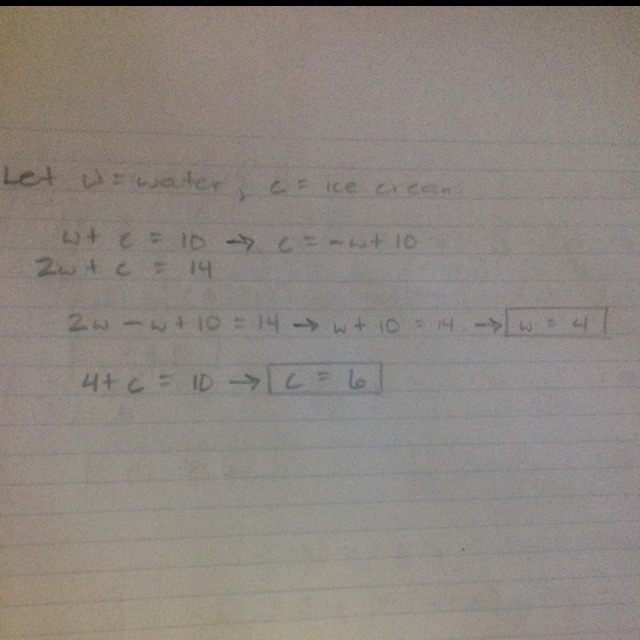 Let w = water, c = ice cream
w + c = 10 → c = -w + 10
2w + c = 14
2w - w + 10 = 14 → w + 10 = 14 → w = 4
4 + c = 10 → c = 6